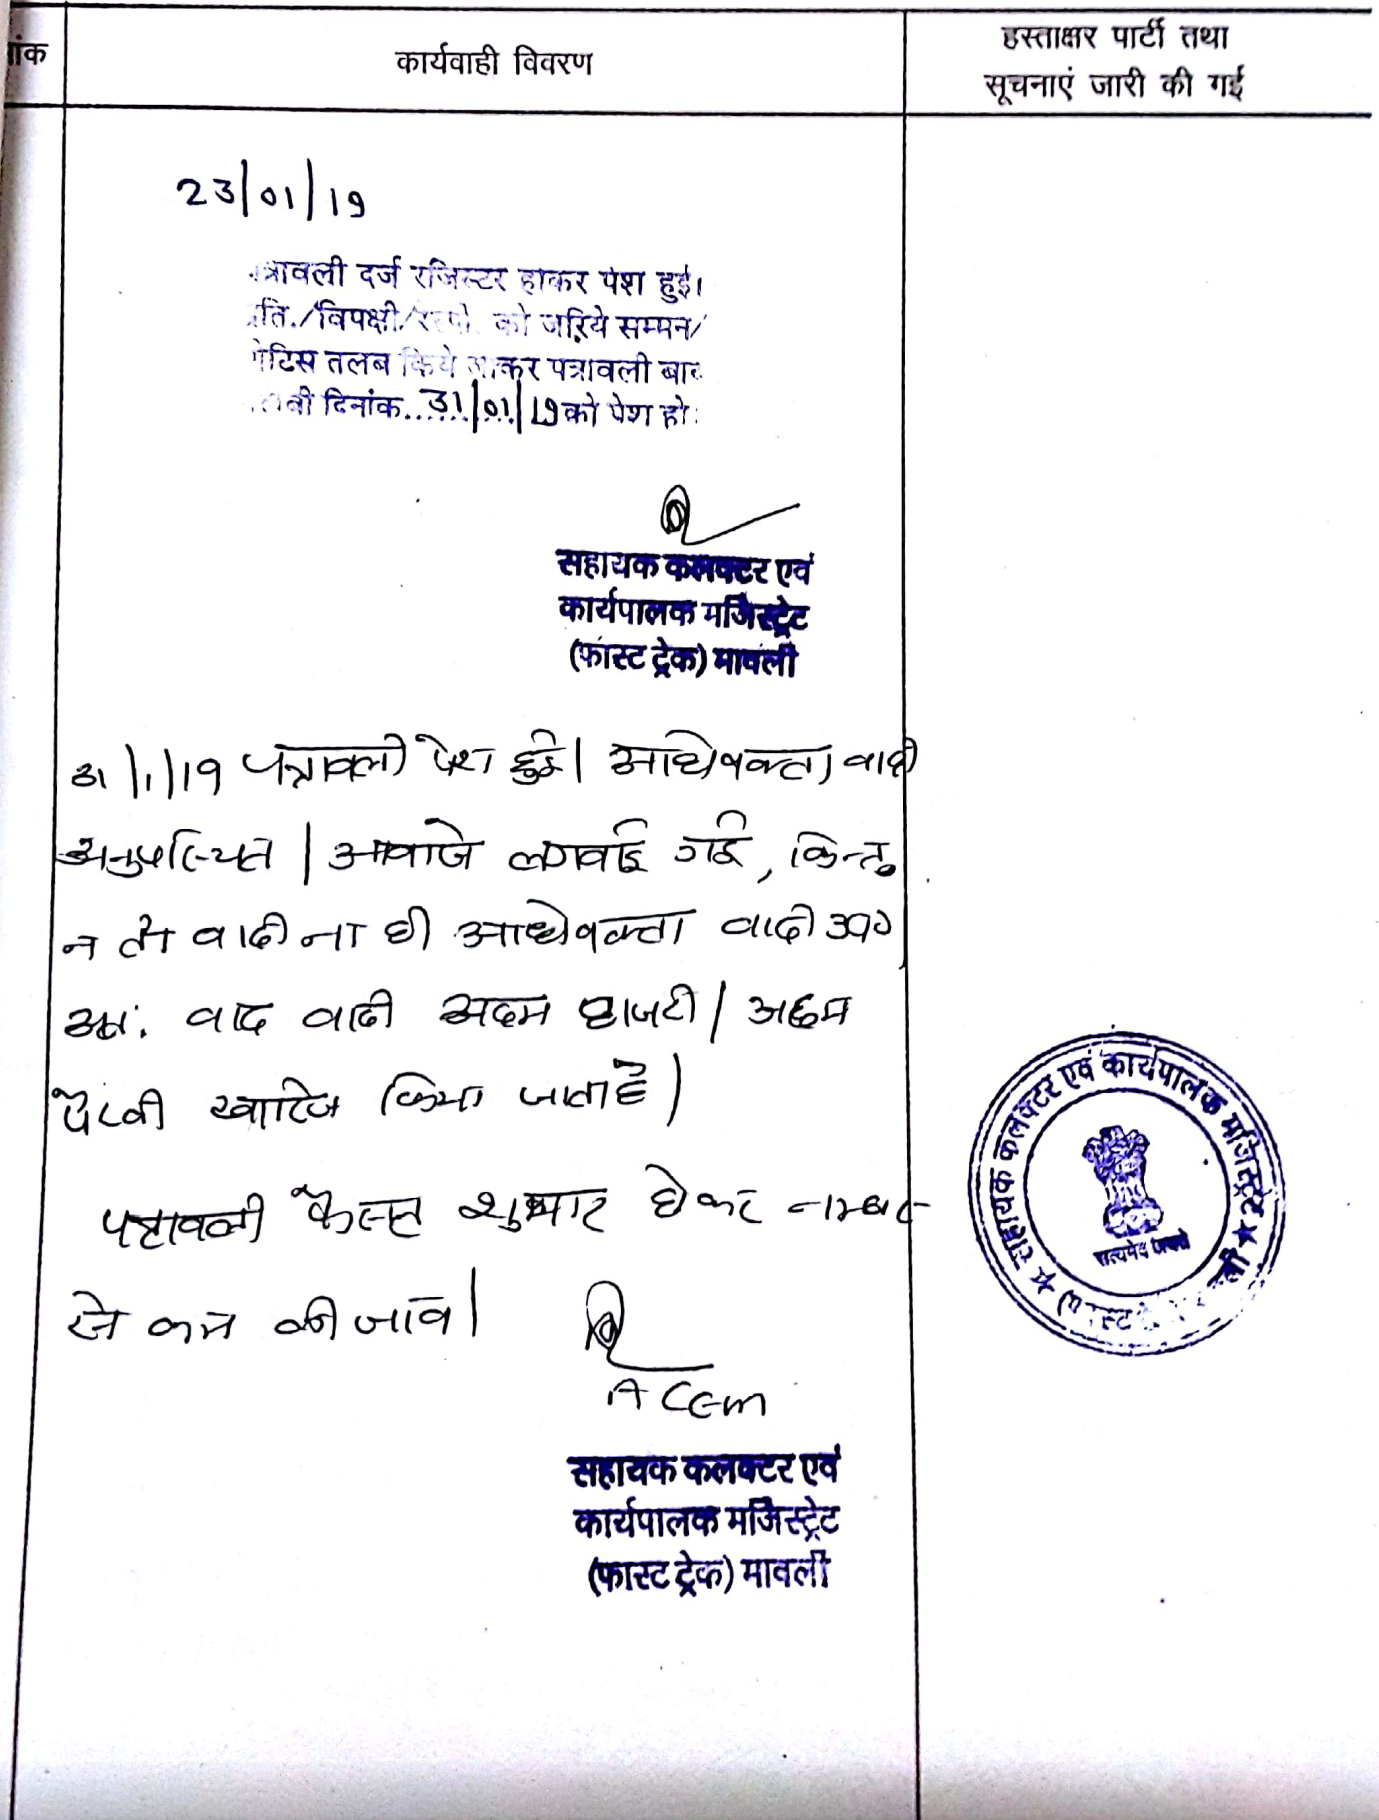 ांक
कार्यवाही विवरण
हस्ताक्षर पार्टी तथा
सूचनाएं जारी की गई
23/01/19
पत्रावली दर्ज रजिस्टर होकर पेश हुई।
प्रति./विपक्षी/रेस्पो. को जरिये सम्मन/
नोटिस तलब किये जाकर पत्रावली बाद
तलबी दिनांक..31/01/19 को पेश हो।
सहायक कलक्टर एवं
कार्यपालक मजिस्ट्रेट
(फास्ट ट्रेक) मावली
31/1/19 पत्रावली पेश हुई। अधिवक्ता वादी
अनुपस्थित। आवाजे लगवाई गई, किन्तु
न तो वादी ना ही अधिवक्ता वादी
अतः वाद वादी अदम हाजरी / अदम
पैरवी खारिज किया जाता है।
पत्रावली फैसल शुमार होकर नम्बर
से कम की जावे।
ACEM
सहायक कलक्टर एवं
कार्यपालक मजिस्ट्रेट
(फास्ट ट्रेक) मावली
सहायक कलक्टर एवं कार्यपालक मजिस्ट्रेट
सत्यमेव जयते